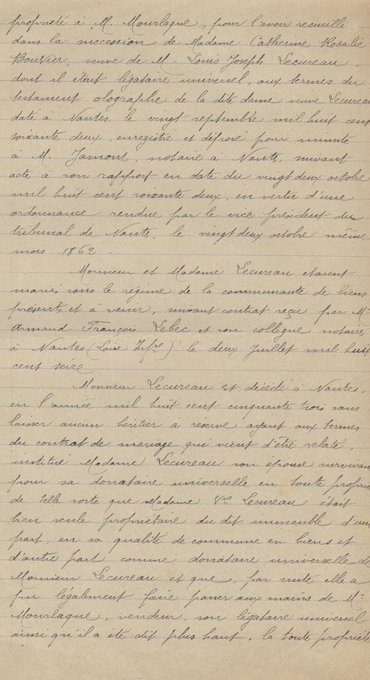 propriété à M. Mourlaque, pour l'avoir recueillie
dans la succession de Madame Catherine Rosalie
Bouvier, veuve de M. Louis Joseph Lecureau,
dont il était légataire universel, aux termes du
testament olographe de la dite dame veuve Lecureau
daté à Nantes, le vingt septembre mil huit cent
soixante deux, enregistré et déposé pour minute
à M. Jamont, notaire à Nantes, suivant
acte à son rapport en date du vingt deux octobre
mil huit cent soixante deux, en vertu d'une
ordonnance rendue par le vice président du
tribunal de Nantes, le vingt deux octobre même
mois 1862.
Monsieur et Madame Lecureau étaient
mariés sous le régime de la communauté de biens
présents et à venir, suivant contrat reçu par Me
Armand François Lebec et son collègue notaires
à Nantes (Loire Infre) le deux Juillet mil huit
cent seize
Monsieur Lecureau est décédé à Nantes,
en l'année mil huit cent cinquante trois sans
laisser aucun héritier à réserve ayant aux termes
du contrat de mariage qui vient d'être relaté,
institué Madame Lecureau son épouse survivante
pour sa donataire universelle en toute propriété
de telle sorte que Madame Vve Lecureau était
bien seule propriétaire du dit immeuble d'une
part, en sa qualité de commune en biens et
d'autre part comme donataire universelle de
Monsieur Lecureau et que, par suite elle a
pu légalement faire passer aux mains de Mr
Mourlaque, vendeur, son légataire universel
ainsi qu'il a été dit plus haut, la toute propriété